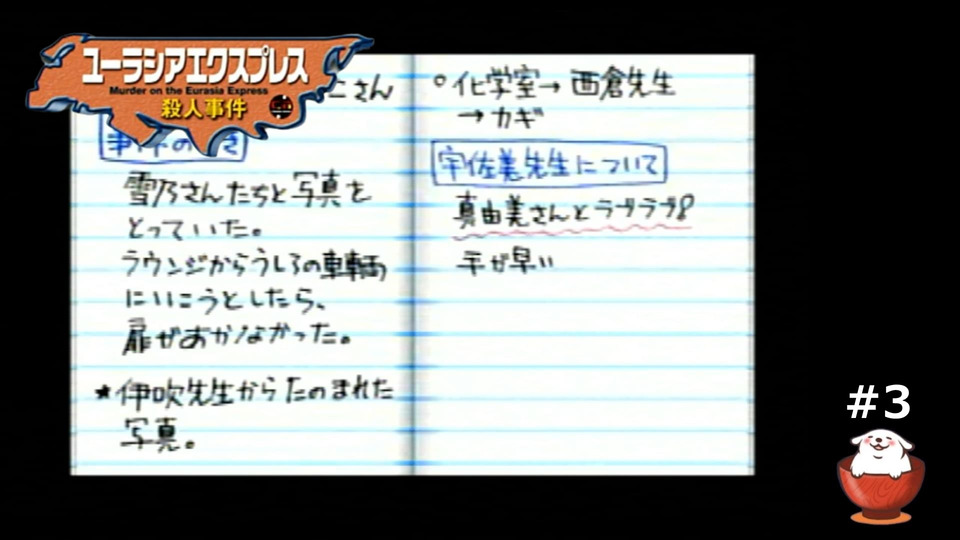 ユーラシアエクスプレス
Murder on the Eurasia Express
殺人事件
さん
雪乃さんたちと写真を
とっていた。
ラウンジからうしろの車輌
にいこうとしたら、
扉があかなかった。
★伊吹先生からたのまれた
写真。
○化学室→西倉先生
→カギ
宇佐美先生について
真由美さんとラブラブ?
手が早い
#3